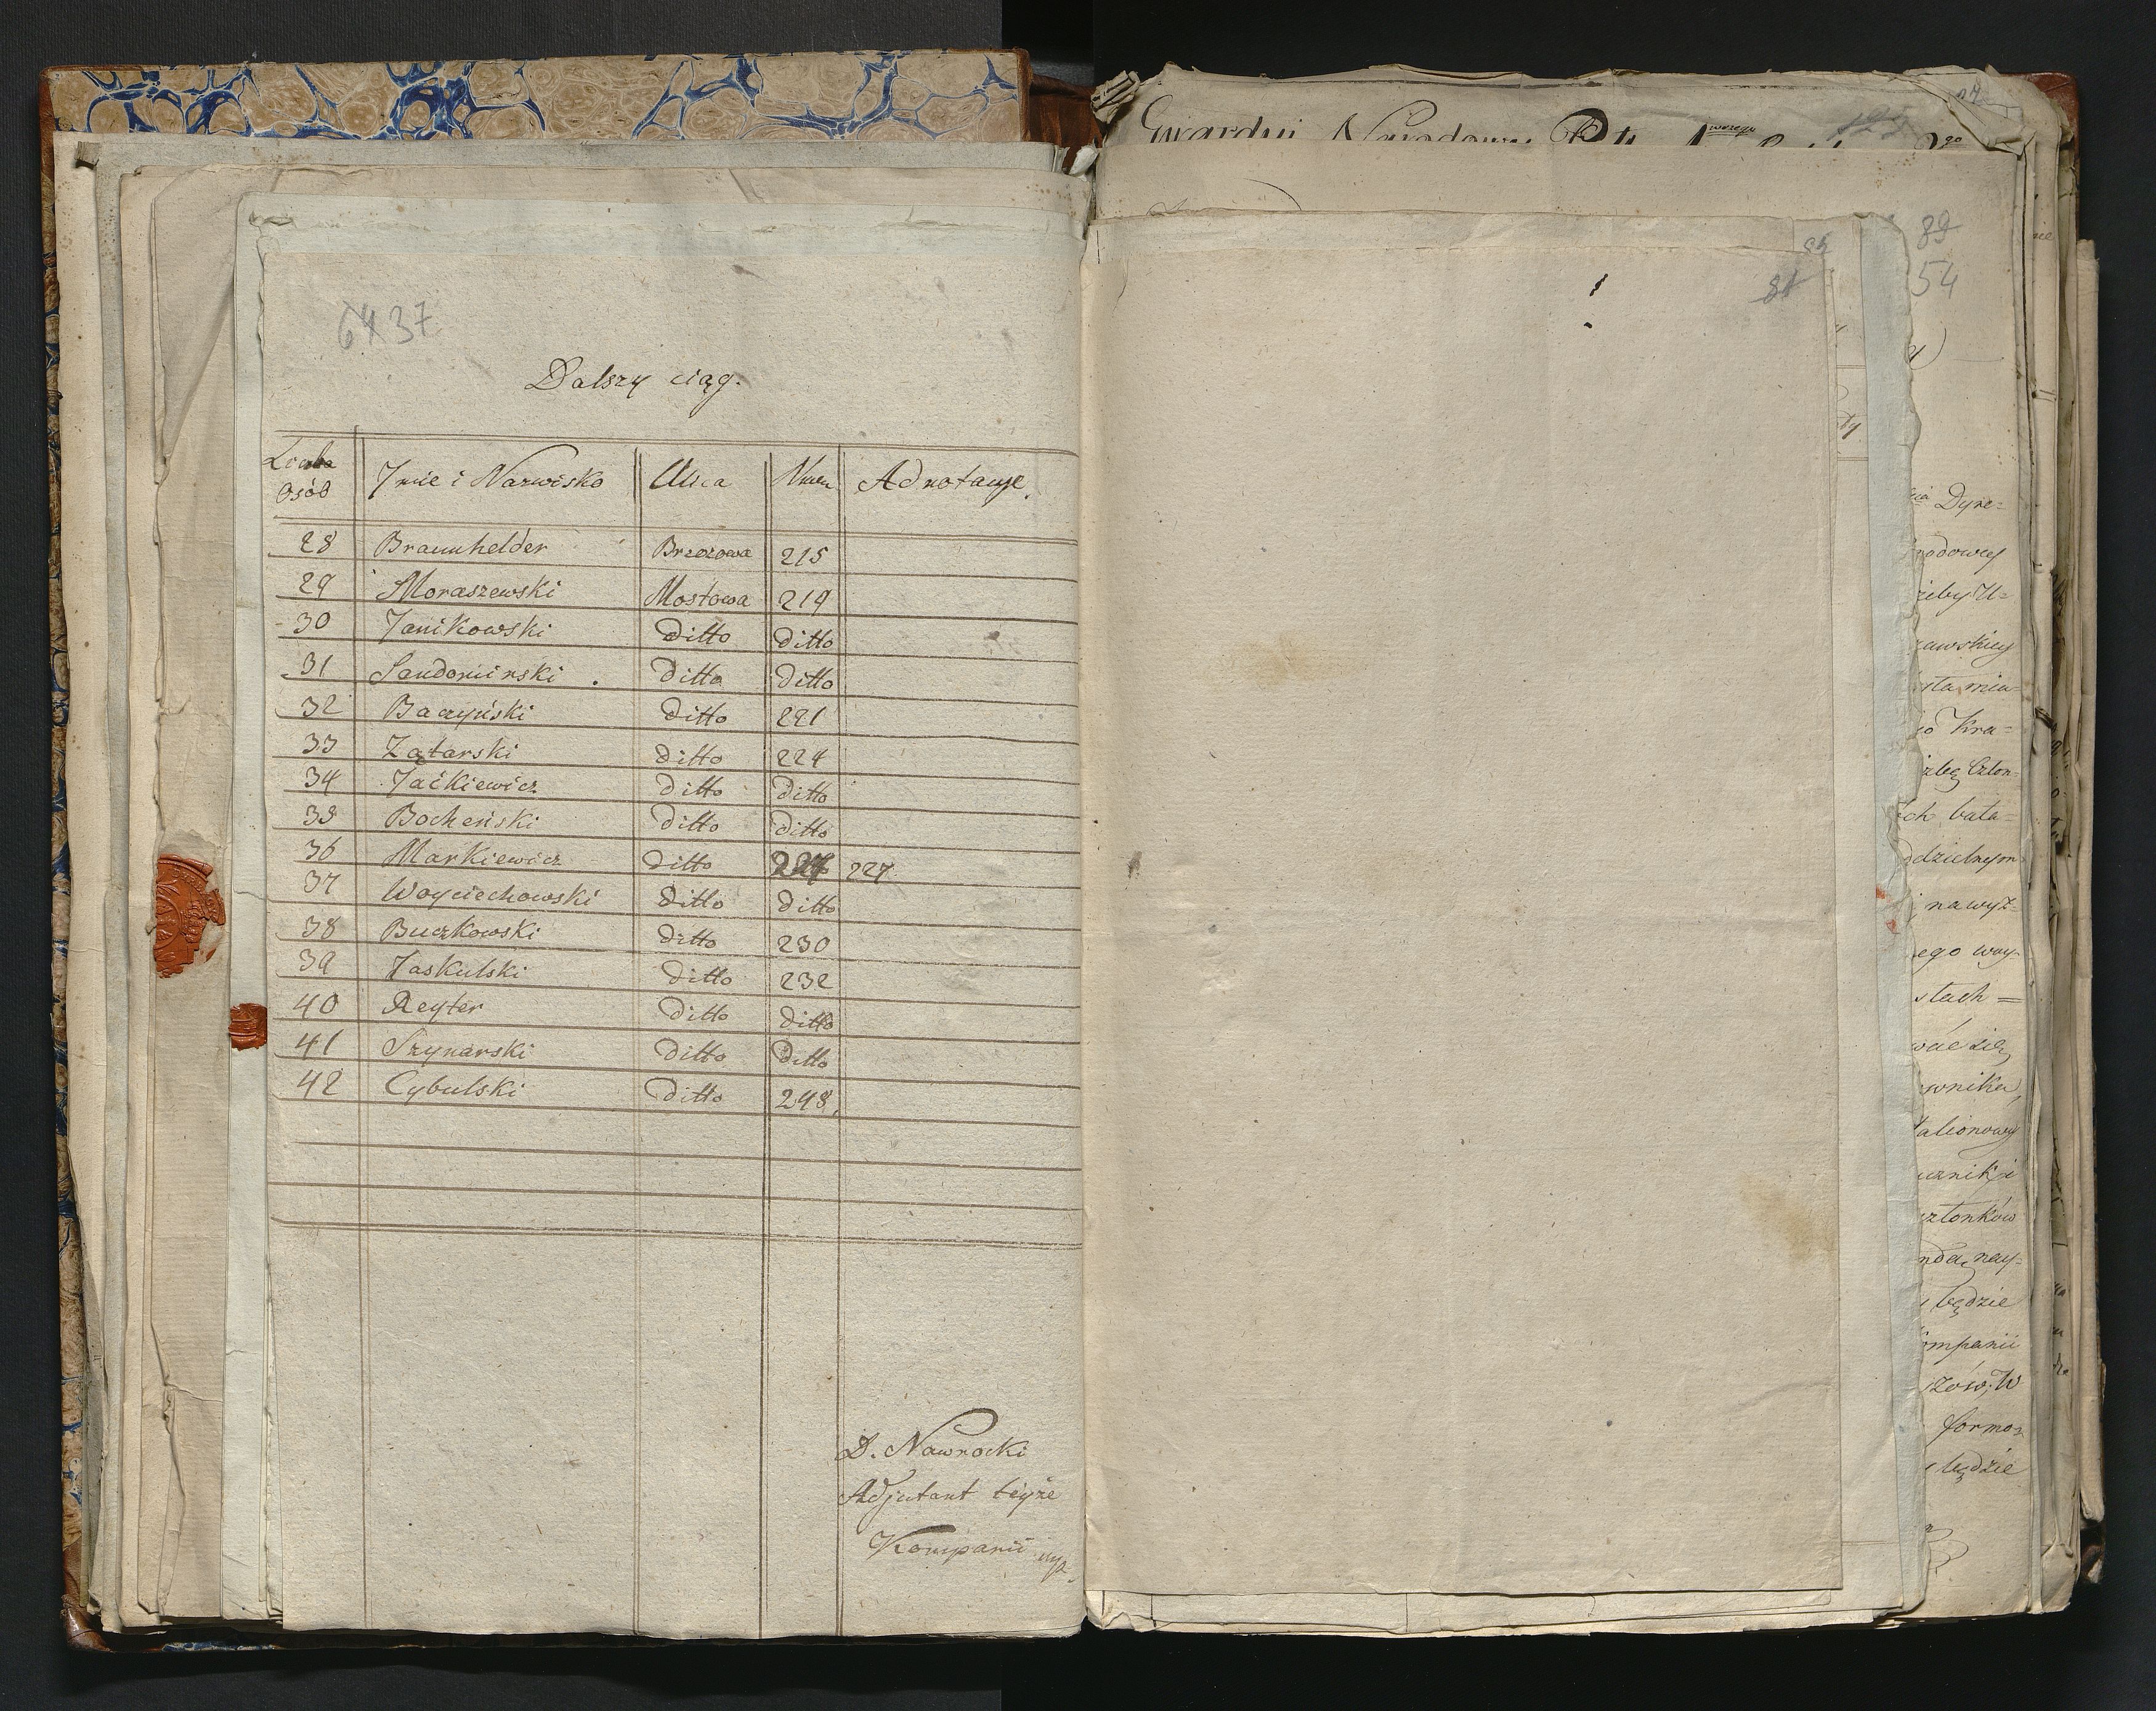 64 37
Dalszy ciąg.
Liczba Osób | Imie i Nazwisko | Ulica | Numer | Adnotacyje.
28 | Braunhelder | Brzozowa | 215
29 | Moraszewski | Mostowa | 219
30 | Janikowski | ditto | ditto
31 | Sandomirski | ditto | ditto
32 | Baczyński | ditto | 221
33 | Zatarski | ditto | 224
34 | Jaćkiewicz | ditto | ditto
35 | Bocheński | ditto | ditto
36 | Markiewicz | ditto | 227 | 227
37 | Woyciechowski | ditto | ditto
38 | Buczkowski | ditto | 230
39 | Jaskulski | ditto | 232
40 | Reyter | ditto | ditto
41 | Szynarski | ditto | ditto
42 | Cybulski | ditto | 248
D. Nawrocki
Adjutant teyże
Kompanii mp
Gwardyi Narodowey
89
54
81
Dyre=
rodowey
żeby U=
rawskiey
sta mia=
Kra=
Człon=
bata=
dzielnym
na wyż=
ego woy=
stach =
wnika,
członków
nay=
będzie
ompanii
W
formo=
będzie